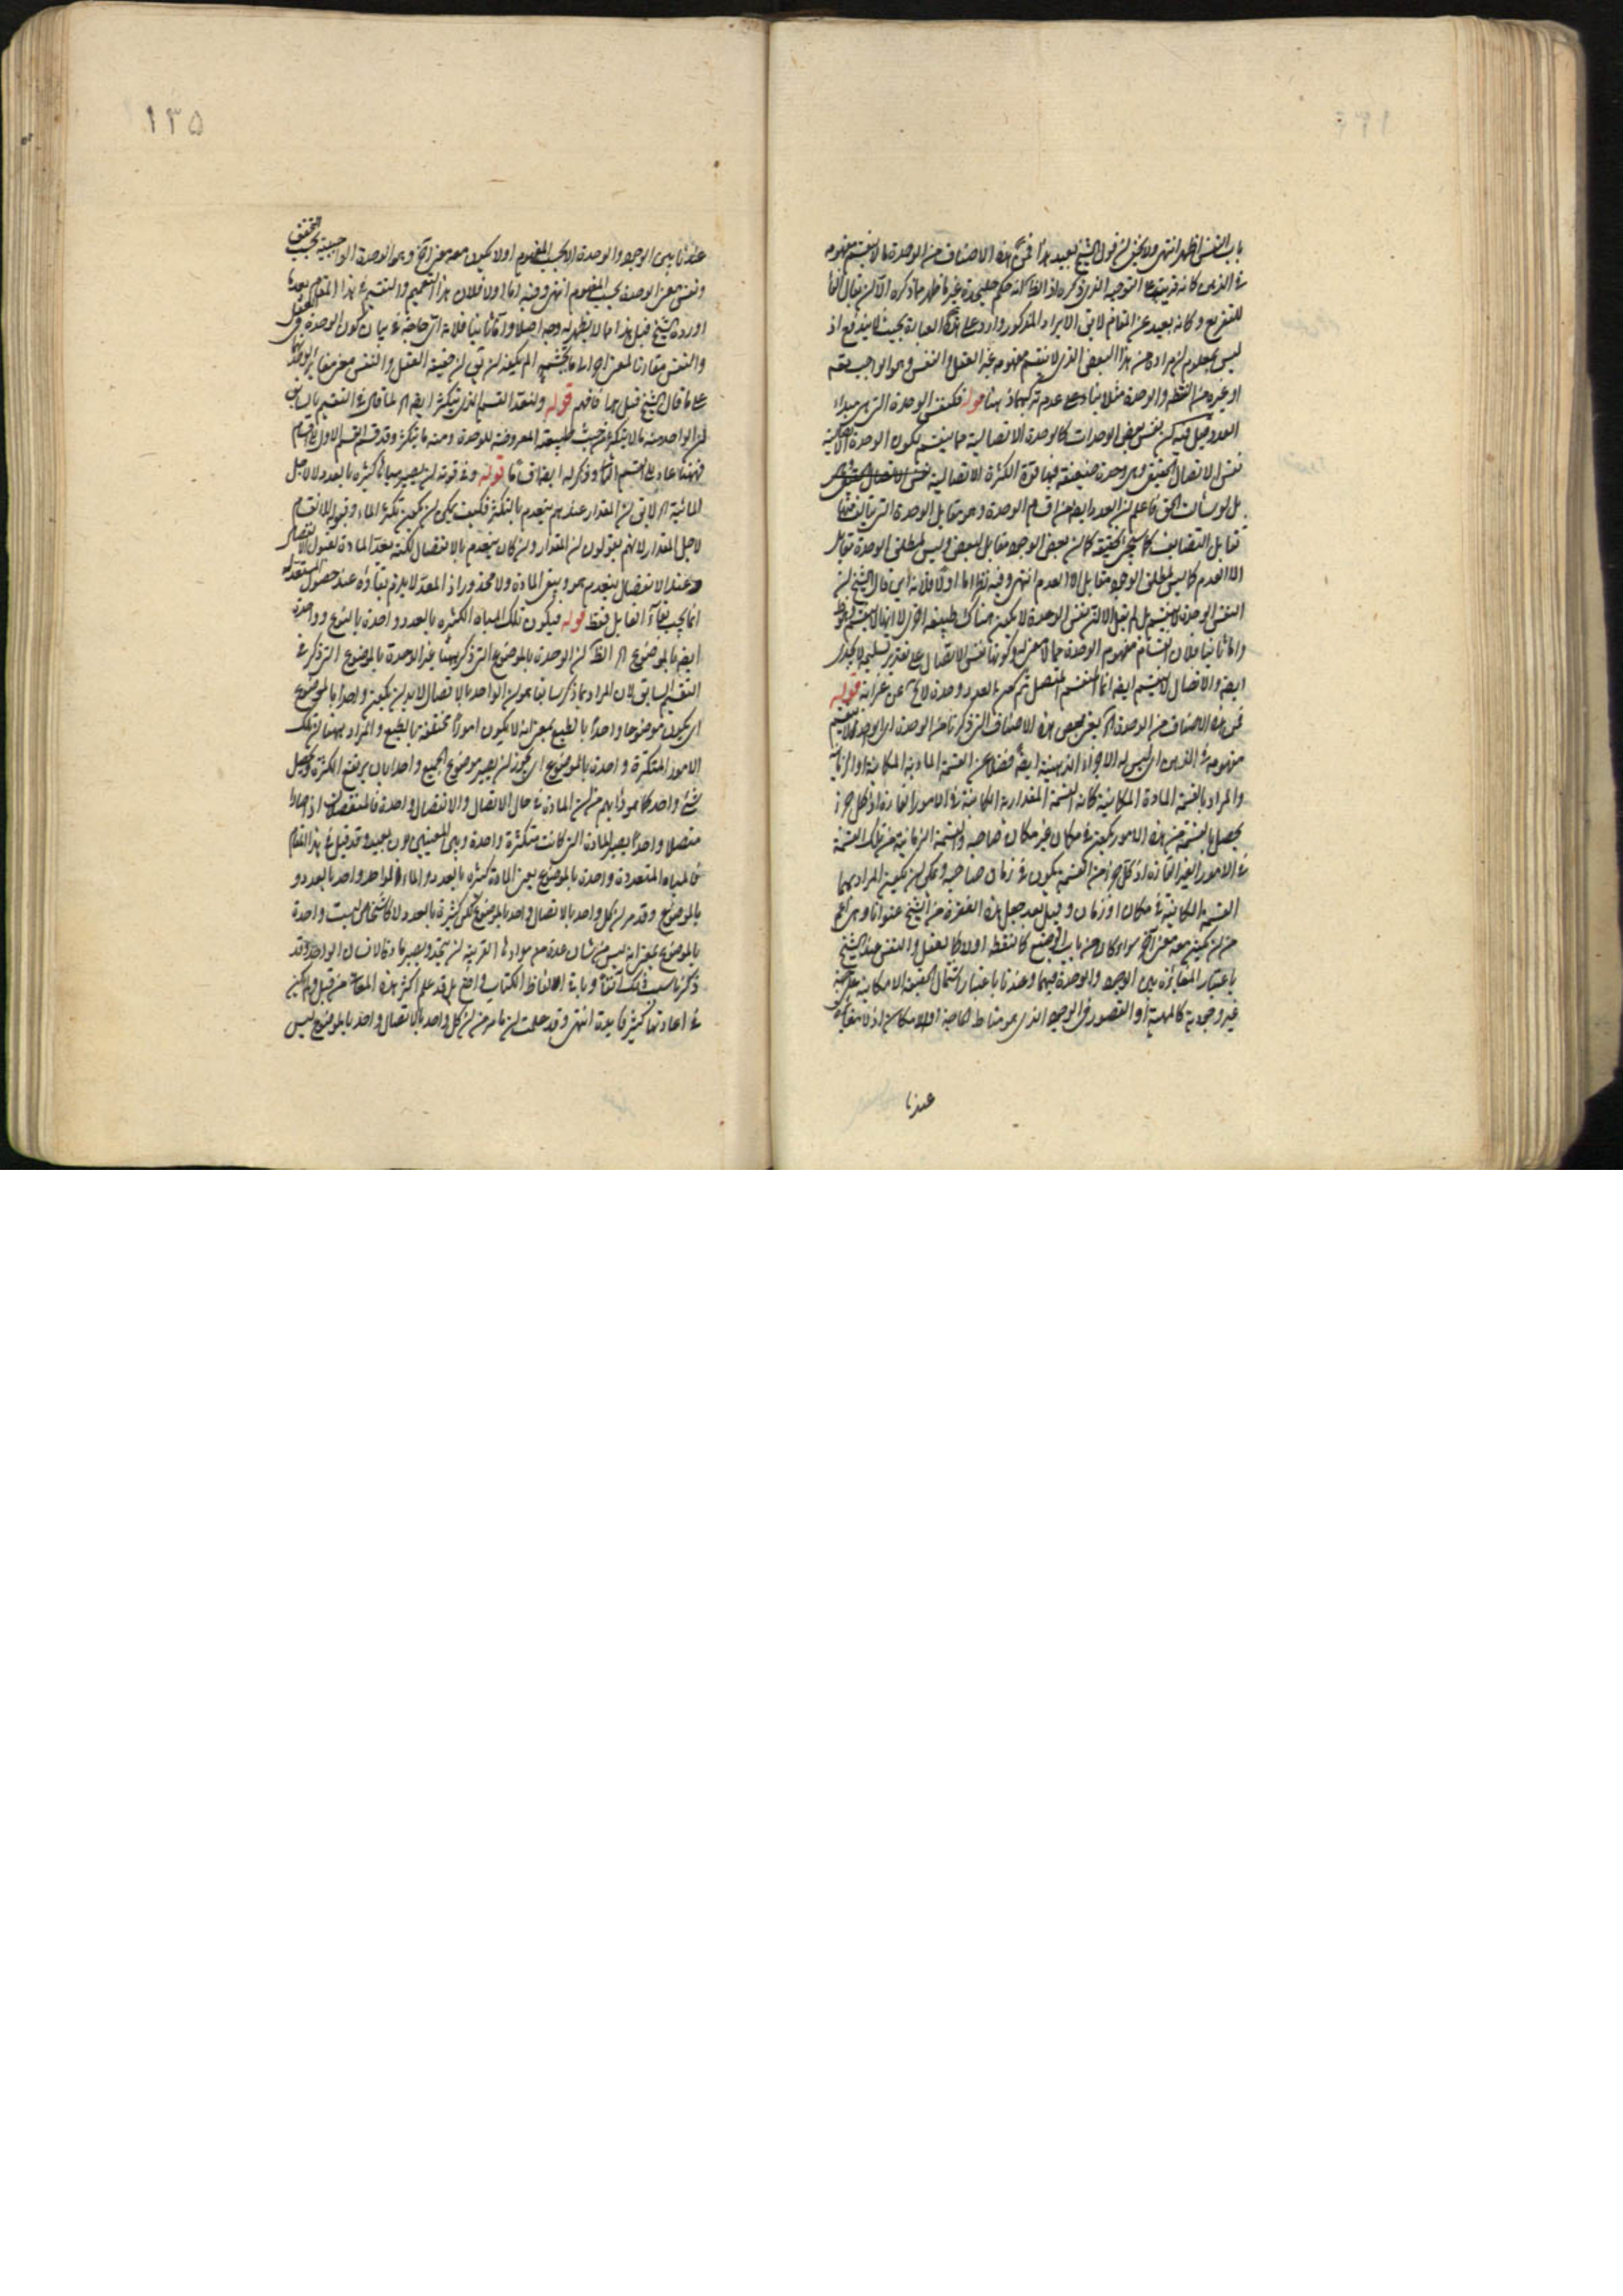 باب النفس اظهر انتهى ولا يخفى ان قول الشيخ بعيد هذا فمن هذه الاصناف من الوحدة ما لا ينقسم مفهومه
في الذهن كانه قرينة على التوجيه الذي ذكره
للتفريع وكانه بعيد عن المقام لا يقال الايراد المذكور وارد على هذه العبارة بحيث لا يندفع اذ
ليس بمعلوم ان مراده من هذا البعض الذي لا ينقسم مفهومه غير العقل والنفس وهو الواجب تعه
او غيره من النقطة والوحدة مثلا بناء على عدم تركيبهما ذهنا قوله فكنفس الوحدة التي هي مبداء
العدد قيل فيه ان بعض الوحدات كالوحدة الاتصالية مما ينقسم لكون الوحدة الاتصالية
نفس الاتصال الحقيقي وهي وحدة ضعيفة فيها قوة الكثرة الاتصالية
بل لو سألت الحق فاعلم ان العدد ايضا من اقسام الوحدة وهو مقابل الوحدة التي يتألف منها
تقابل التضايف كما سيجئ تحقيقه كما ان بعض الوجود مقابل لبعض وليس لمطلق الوحدة مقابل
الا العدم كما ليس لمطلق الوجود مقابل الا العدم انتهى وفيه نظر اما اولا فلانه اين قال الشيخ ان
النفس الوحدة لا ينقسم بل لم يقل الا ان نفس الوحدة لا يكون هناك طبيعة اخرى لا انها لا ينقسم
واما ثانيا فلان انقسام مفهوم الوحدة مما لا معنى له وكونها نفس الاتصال على تقدير تسليمه لا يجدي
ايضا والاتصال لا ينقسم ايضا انما المنقسم المتصل ثم كون العدد وحدة لا يخ عن غرابة قوله
فمن هذه الاصناف من الوحدة اه يعني بعض هذه الاصناف التي ذكرناها من الوحدة اي الواحد ما لا ينقسم
مفهومه في الذهن اي ليس له الاجزاء الذهنية ايضا فضلا عن القسمة المادية المكانية او الزمانية
والمراد بالقسمة المادة المكانية كانه القسمة المقدارية الكائنة في الامور القارة اذ كل جزء
يحصل بالقسمة من هذه الامور يكون في مكان غير مكان صاحبه والقسمة الزمانية من تلك القسمة
في الامور الغير القارة اذ كل جزء من القسمة يكون في زمان صاحبه ويمكن ان يكون المراد بهما
القسمة الكائنة في مكان او زمان وقيل بعد جعل هذه الفقرة من الشيخ عنوانا وهي اعم
من ان يكون معه معنى اخر سواء كان من باب الوضع كالنقطة او لا كالعقل والنفس عند الشيخ
باعتبار المغايرة بين الوجود والوحدة فيهما وعندنا باعتبار اشتمال الحقيقة الامكانية على جهة
غير وجودية كالمهية او القصور في الوجود الذي هو مناط الحاجة او الامكان اذ لا مغايرة
عندنا
عندنا بين الوجود والوحدة الا بحسب المفهوم او لا يكون معه معنى اخر وهو الوحدة الواجبية بحسب التحقق
ونفس معنى الوحدة بحسب المفهوم انتهى وفيه اما اولا فلان هذا التعميم والتقسيم في هذا المقام بعد ما
اورده الشيخ قبل هذا مما لا يظهر له وجه اصلا واما ثانيا فلانه اي حاجة في بيان كون الوحدة في العقل
والنفس مقارنا لمعنى اخر الى ما تجشمه الم يكفه ان يقال ان حقيقة العقل والنفس معنى مغاير للوحدة
على ما قال الشيخ قبيل هذا فافهم قوله ولنعد القسم الذي يتكثر ايضا اه لما قال في التقسيم السابق
ان الواحد منه ما لا يتكثر من حيث طبيعته المعروضة للوحدة ومنه ما يتكثر وقد قسم القسم الاول الى اقسام
فههنا عاد الى القسم الثاني وذكر له ايضا اقساما قوله وفي قوته ان يصير مياها كثيرة بالعدد لا لاجل
المائية اه لا يق ان المقدار عندهم ينعدم بالتكثر فكيف يمكن ان يكون تكثر الماء وقبوله للانقسام
لاجل المقدار لانهم يقولون ان المقدار وان كان ينعدم بالانفصال لكنه يعد المادة لقبول الانفصال
وعند الانفصال ينعدم هو ويبقى المادة ولا محذور اذ المعد لا يلزم بقاؤه عند حصول المستعد له
انما يجب بقاء القابل فقط قوله فيكون تلك المياه الكثيرة بالعدد واحدة بالنوع وواحدة
ايضا بالموضوع اه الظ ان الوحدة بالموضوع التي ذكر ههنا غير الوحدة بالموضوع التي ذكر في
التقسيم السابق لان المراد بما ذكر سابقا هو ان الواحد بالاتصال لا بد ان يكون واحدا بالموضوع
اي يكون موضوعا واحدا بالطبع بمعنى انه لا يكون امورا مختلفة بالطبع والمراد ههنا ان تلك
الامور المتكثرة واحدة بالموضوع اي يجوز ان يصير موضوع الجميع واحدا بان يرتفع الكثرة ويحصل
شئ واحد كما هو رأيهم من ان المادة في حال الاتصال والانفصال واحدة فالمنفصلان اذا صارا
متصلا واحدا يصير المادة التي كانت متكثرة واحدة وبين المعنيين بون بعيد وقد قيل في هذا المقام
فالمياه المتعددة واحدة بالموضوع يعني المادة كثيرة بالعدد والماء الواحد واحد بالعدد و
بالموضوع وقد مر ان كل واحد بالاتصال واحد بالموضوع لكن كثيرة بالعدد لا كاشخاص ليست واحدة
بالموضوع بمعنى انه ليس من شان عدة من موادها القريبة ان يتحد ويصير مادة لانسان الواحد وقد
ذكرنا سبب ذلك آنفا وباقي الفاظ الكتاب واضح بل قد علم اكثر هذه المعاني من قبل ولم يكن
في اعادتها كثير فايدة انتهى وقد علمت ان ما مر من ان كل واحد بالاتصال واحد بالموضوع ليس
١٣٥